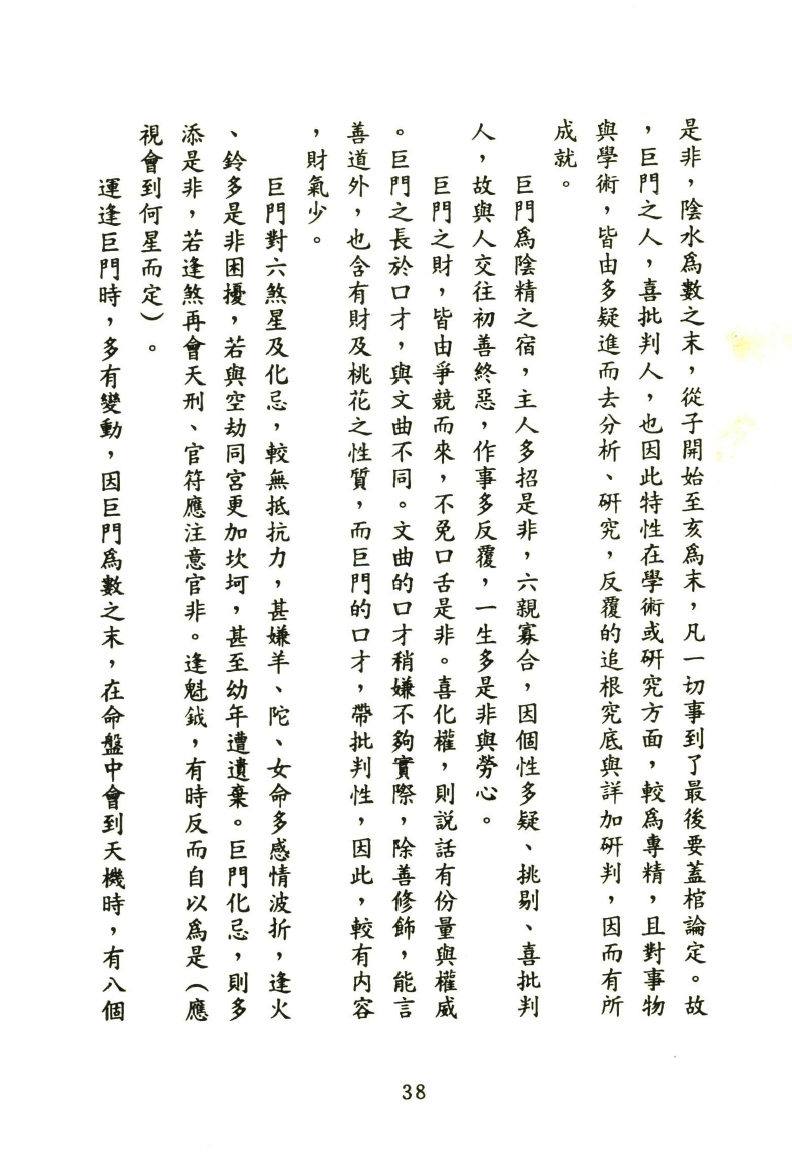 是非，陰水爲數之末，從子開始至亥爲末，凡一切事到了最後要蓋棺論定。故
，巨門之人，喜批判人，也因此特性在學術或研究方面，較爲專精，且對事物
與學術，皆由多疑進而去分析、研究，反覆的追根究底與詳加研判，因而有所
成就。
巨門爲陰精之宿，主人多招是非，六親寡合，因個性多疑、挑剔、喜批判
人，故與人交往初善終惡，作事多反覆，一生多是非與勞心。
巨門之財，皆由爭競而來，不免口舌是非。喜化權，則說話有份量與權威
。巨門之長於口才，與文曲不同。文曲的口才稍嫌不夠實際，除善修飾，能言
善道外，也含有財及桃花之性質，而巨門的口才，帶批判性，因此，較有內容
，財氣少。
巨門對六煞星及化忌，較無抵抗力，甚嫌羊、陀、女命多感情波折，逢火
、鈴多是非困擾，若與空劫同宮更加坎坷，甚至幼年遭遺棄。巨門化忌，則多
添是非，若逢煞再會天刑、官符應注意官非。逢魁鉞，有時反而自以爲是（應
視會到何星而定）。
運逢巨門時，多有變動，因巨門爲數之末，在命盤中會到天機時，有八個
38